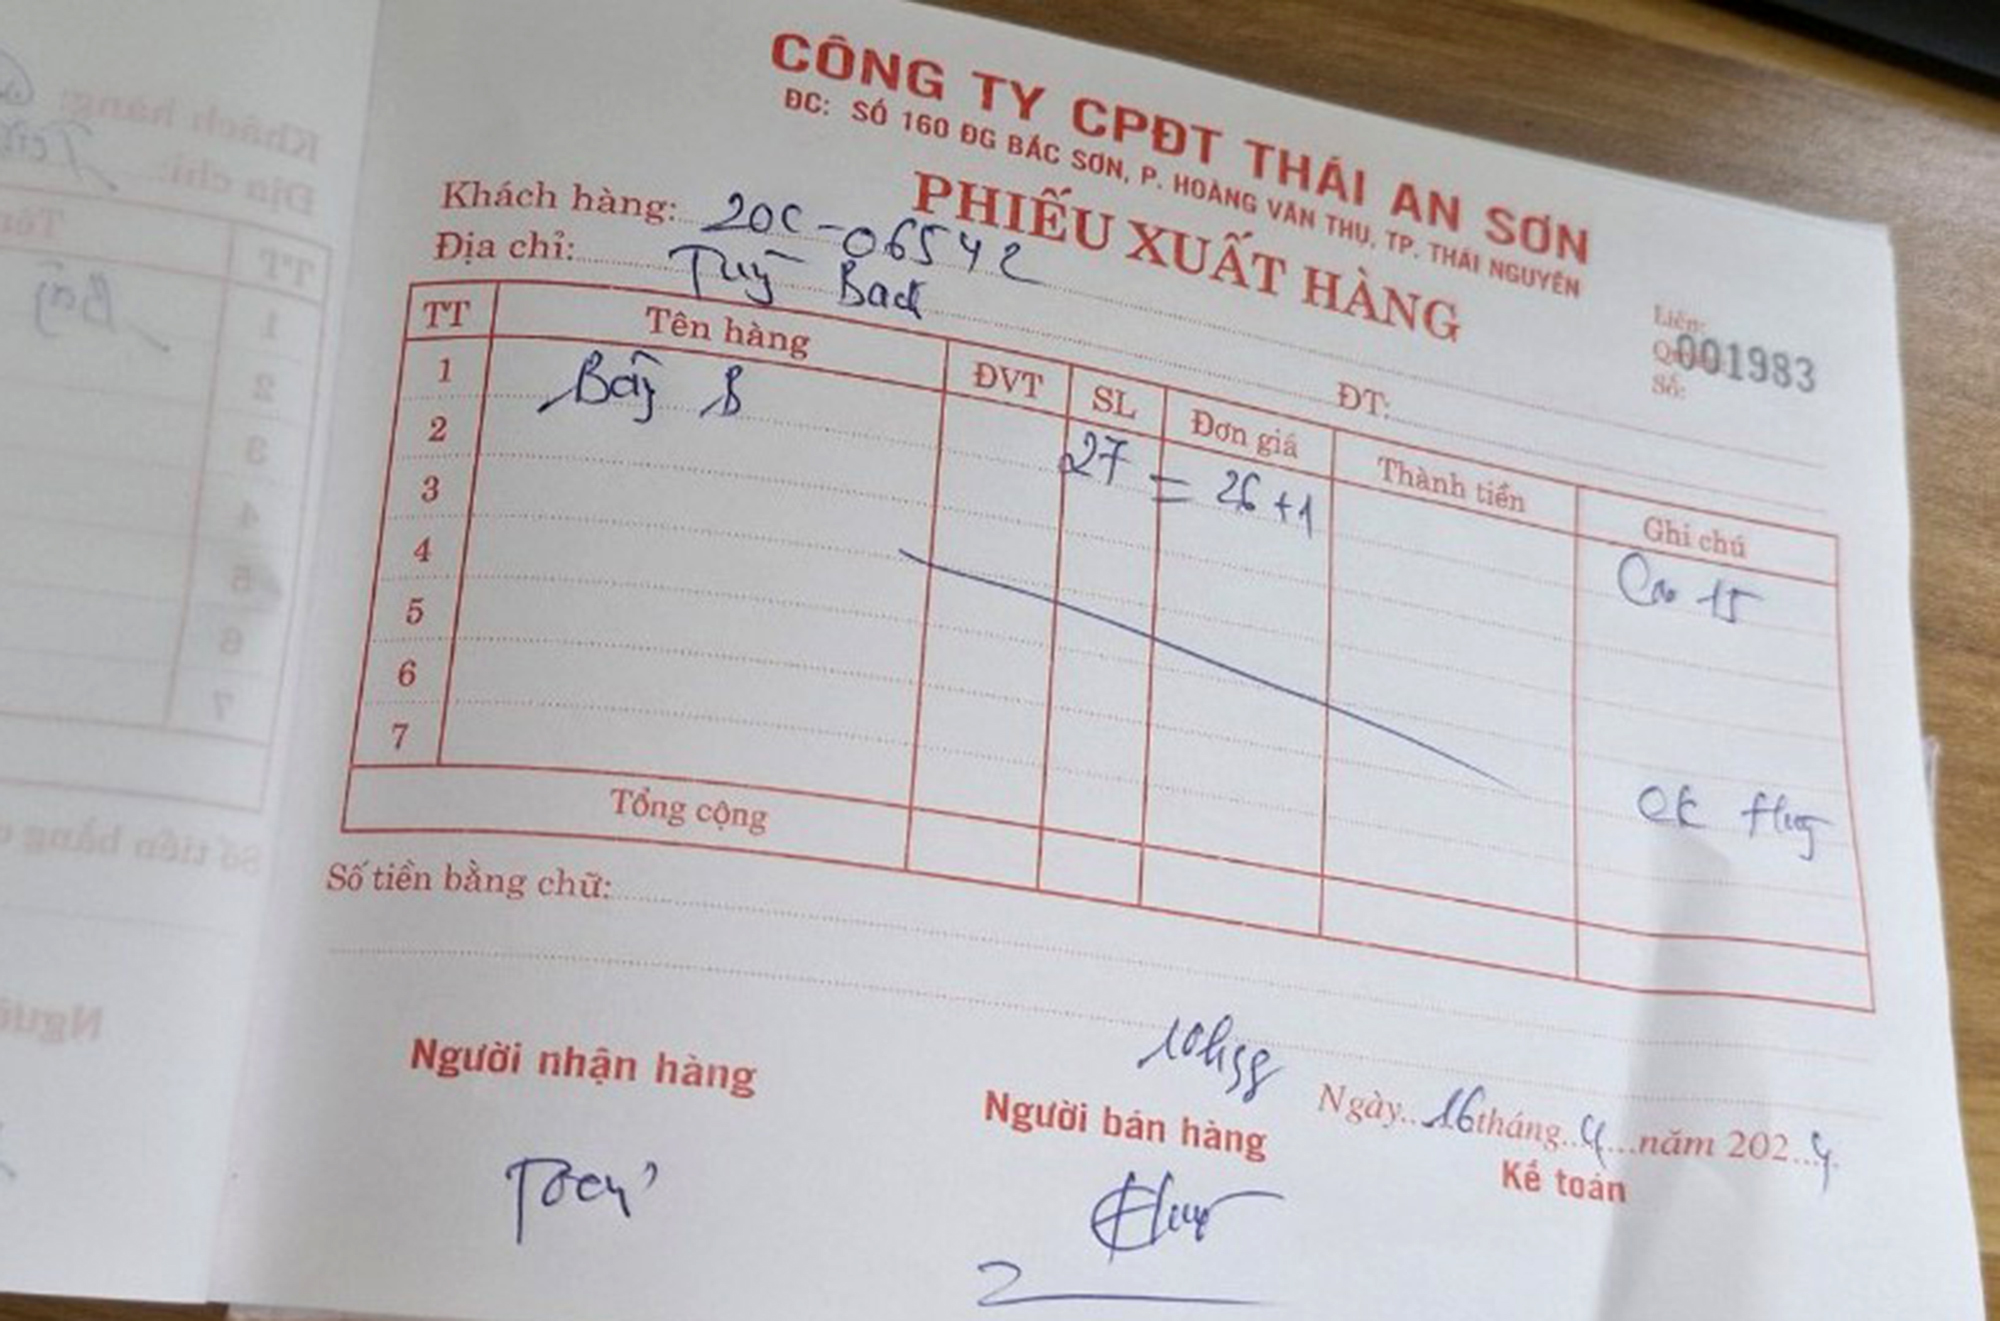 CÔNG TY CPĐT THÁI AN SƠN
ĐC: SỐ 160 ĐG BẮC SƠN, P. HOÀNG VĂN THỤ, TP. THÁI NGUYÊN
PHIẾU XUẤT HÀNG
Liên:
Số: 001983
Khách hàng: 20C-06542
Địa chỉ:
ĐT:
TT Tên hàng ĐVT SL Đơn giá Thành tiền Ghi chú
1 Bây B 27 = 26+1 Cao 15
2
3
4
5
6
7
Tổng cộng
Số tiền bằng chữ:
10h58
Ngày 16 tháng 4 năm 2024
Người nhận hàng Người bán hàng Kế toán
Khách hàng:
Địa chỉ:
TT
1
2
3
4
5
6
7
Số tiền bằng